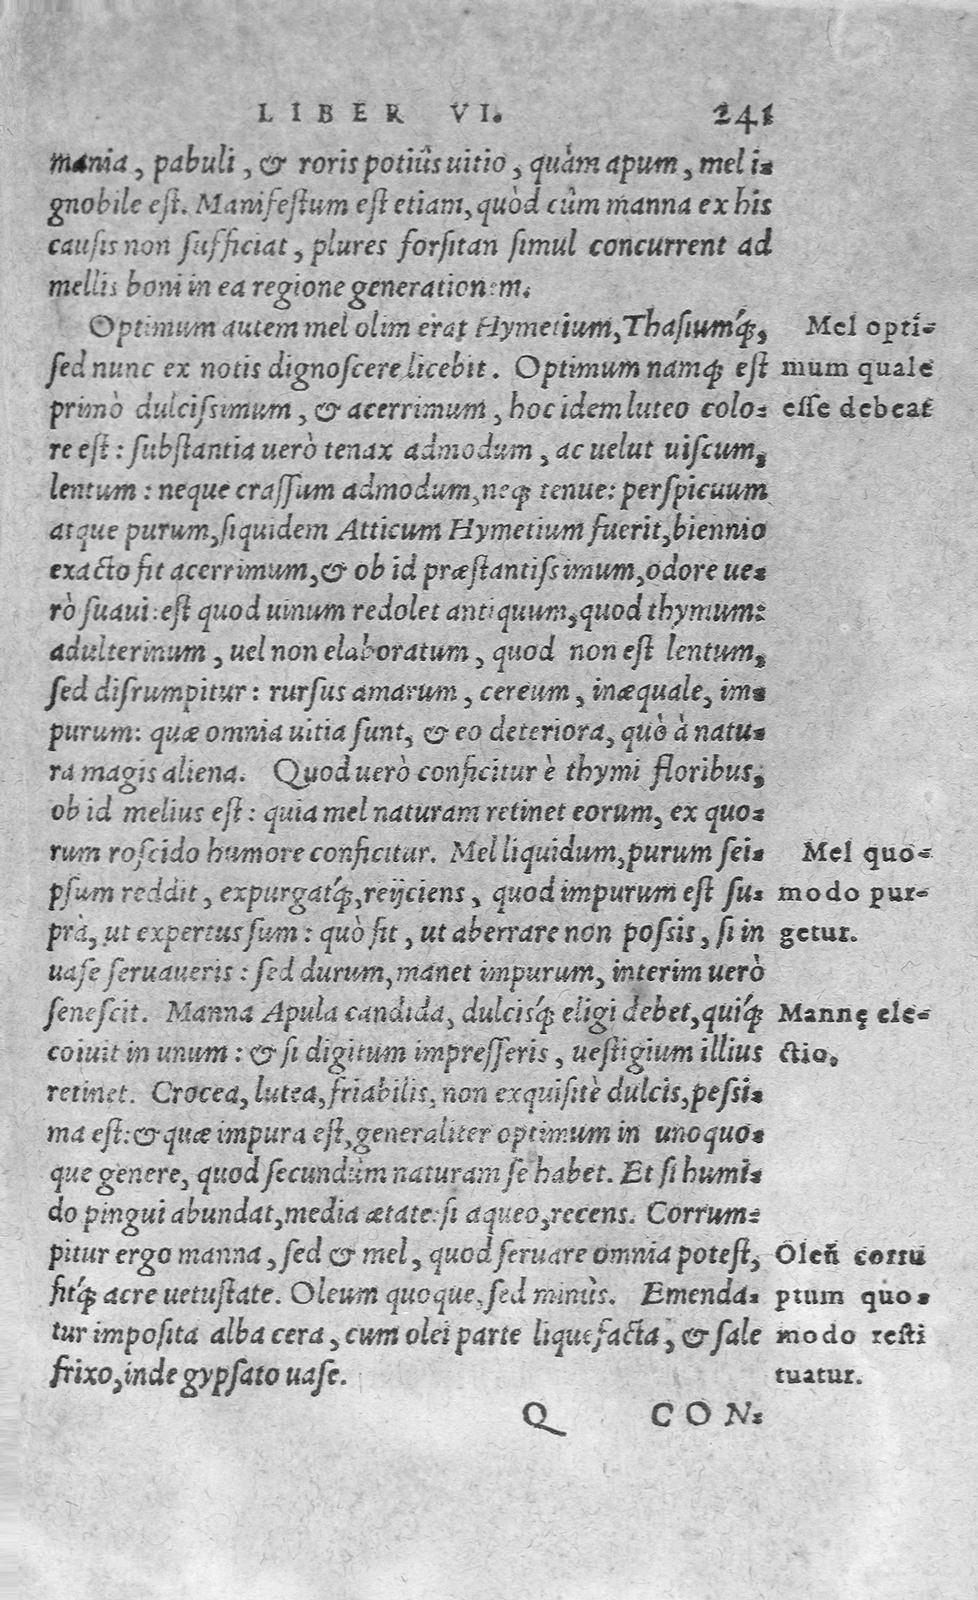 LIBER VI. 241
mania, pabuli, & roris potiûs uitio, quàm apum, mel i-
gnobile est. Manifestum est etiam, quòd cûm manna ex his
causis non sufficiat, plures forsitan simul concurrent ad
mellis boni in ea regione generationem.
Optimum autem mel olim erat Hymetium, Thasiumq́;,
sed nunc ex notis dignoscere licebit. Optimum namq; est
primò dulcissimum, & acerrimum, hoc idem luteo colo-
re est: substantia uerò tenax admodum, ac uelut uiscum,
lentum: neque crassum admodum, neq; tenue: perspicuum
atque purum, siquidem Atticum Hymetium fuerit, biennio
exacto fit acerrimum, & ob id præstantissimum, odore ue-
rò suaui: est quod uinum redolet antiquum, quod thymum:
adulterinum, uel non elaboratum, quod non est lentum,
sed disrumpitur: rursus amarum, cereum, inæquale, im-
purum: quæ omnia uitia sunt, & eo deteriora, quò à natu-
ra magis aliena. Quod uerò conficitur è thymi floribus,
ob id melius est: quia mel naturam retinet eorum, ex quo-
rum roscido humore conficitur. Mel liquidum, purum sei-
psum reddit, expurgatq́;, reijciens, quod impurum est su-
prà, ut expertus sum: quò fit, ut aberrare non possis, si in
uase seruaueris: sed durum, manet impurum, interim uerò
senescit. Manna Apula candida, dulcisq́; eligi debet, quiq́;
coiuit in unum: & si digitum impresseris, uestigium illius
retinet. Crocea, lutea, friabilis, non exquisitè dulcis, pessi-
ma est: & quæ impura est, generaliter optimum in unoquo-
que genere, quod secundùm naturam se habet. Et si humi-
do pingui abundat, media ætate: si aqueo, recens. Corrum-
pitur ergo manna, sed & mel, quod seruare omnia potest,
fitq́; acre uetustate. Oleum quoque, sed minùs. Emenda-
tur imposita alba cera, cum olei parte liquefacta, & sale
frixo, inde gypsato uase.
Q CON-
Mel opti-
mum quale
esse debeat
Mel quo-
modo pur-
getur.
Mannę ele-
ctio.
Oleũ corru
ptum quo-
modo resti
tuatur.